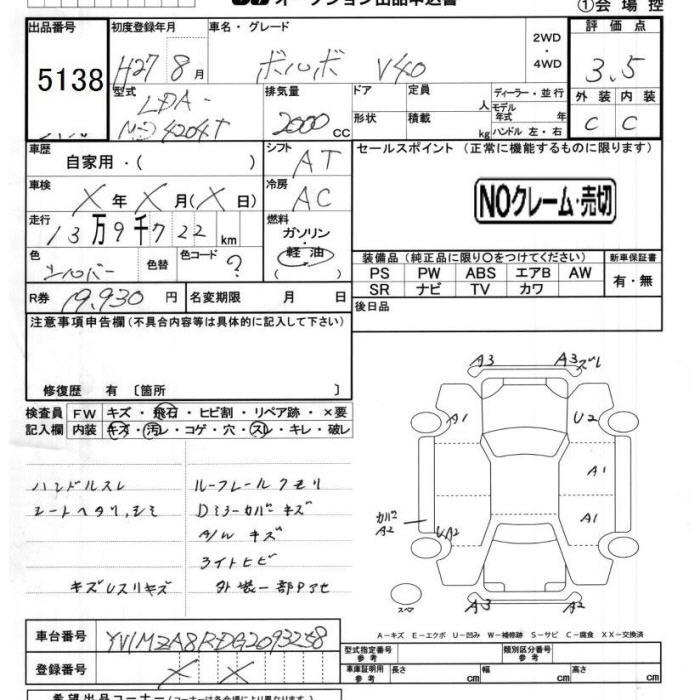 オークション出品申込書
①会場控
出品番号
初度登録年月
車名・グレード
2WD
・
4WD
評価点
5138
H27 8月
ボルボ V40
3.5
型式
排気量
ドア
定員
人
ディーラー・並行
外装 内装
LDA-
2000 CC
形状
積載
kg
モデル年式 年
ハンドル 左・右
C C
車歴
自家用・( )
シフト AT
セールスポイント（正常に機能するものに限ります）
車検 X年 X月(X日)
冷房 AC
NOクレーム・売切
走行 13万9千722km
燃料
ガソリン・
軽油
色 シルバー
色替
色コード ?
装備品（純正品に限り〇をつけてください）
新車保証書
PS PW ABS エアB AW
有・無
SR ナビ TV カワ
R券 19,930円
名変期限 月 日
後日品
注意事項申告欄（不具合内容等は具体的に記入して下さい）
修復歴 有 〔箇所 〕
検査員 FW キズ・飛石・ヒビ割・リペア跡・×要
記入欄 内装 キズ・汚レ・コゲ・穴・スレ・キレ・破レ
ハンドルスレ
ルーフレールクモリ
シートヘタリ,シミ
Dミラーカバーキズ
A/W キズ
ライトヒビ
キズUスリキズ
外装一部Pアセ
A3
A3ズレ
A1
U2
A1
カバー
A2
UA2
A1
スペア
A3
A2
A－キズ E－エクボ U－凹み W－補修跡 S－サビ C－腐食 XX－交換済
車台番号
登録番号 X X
型式指定番号
参考
類別区分番号
参考
車庫証明用
参考
長さ cm
幅 cm
高さ cm
希望出品コーナー（コーナーは各会場により異なります）